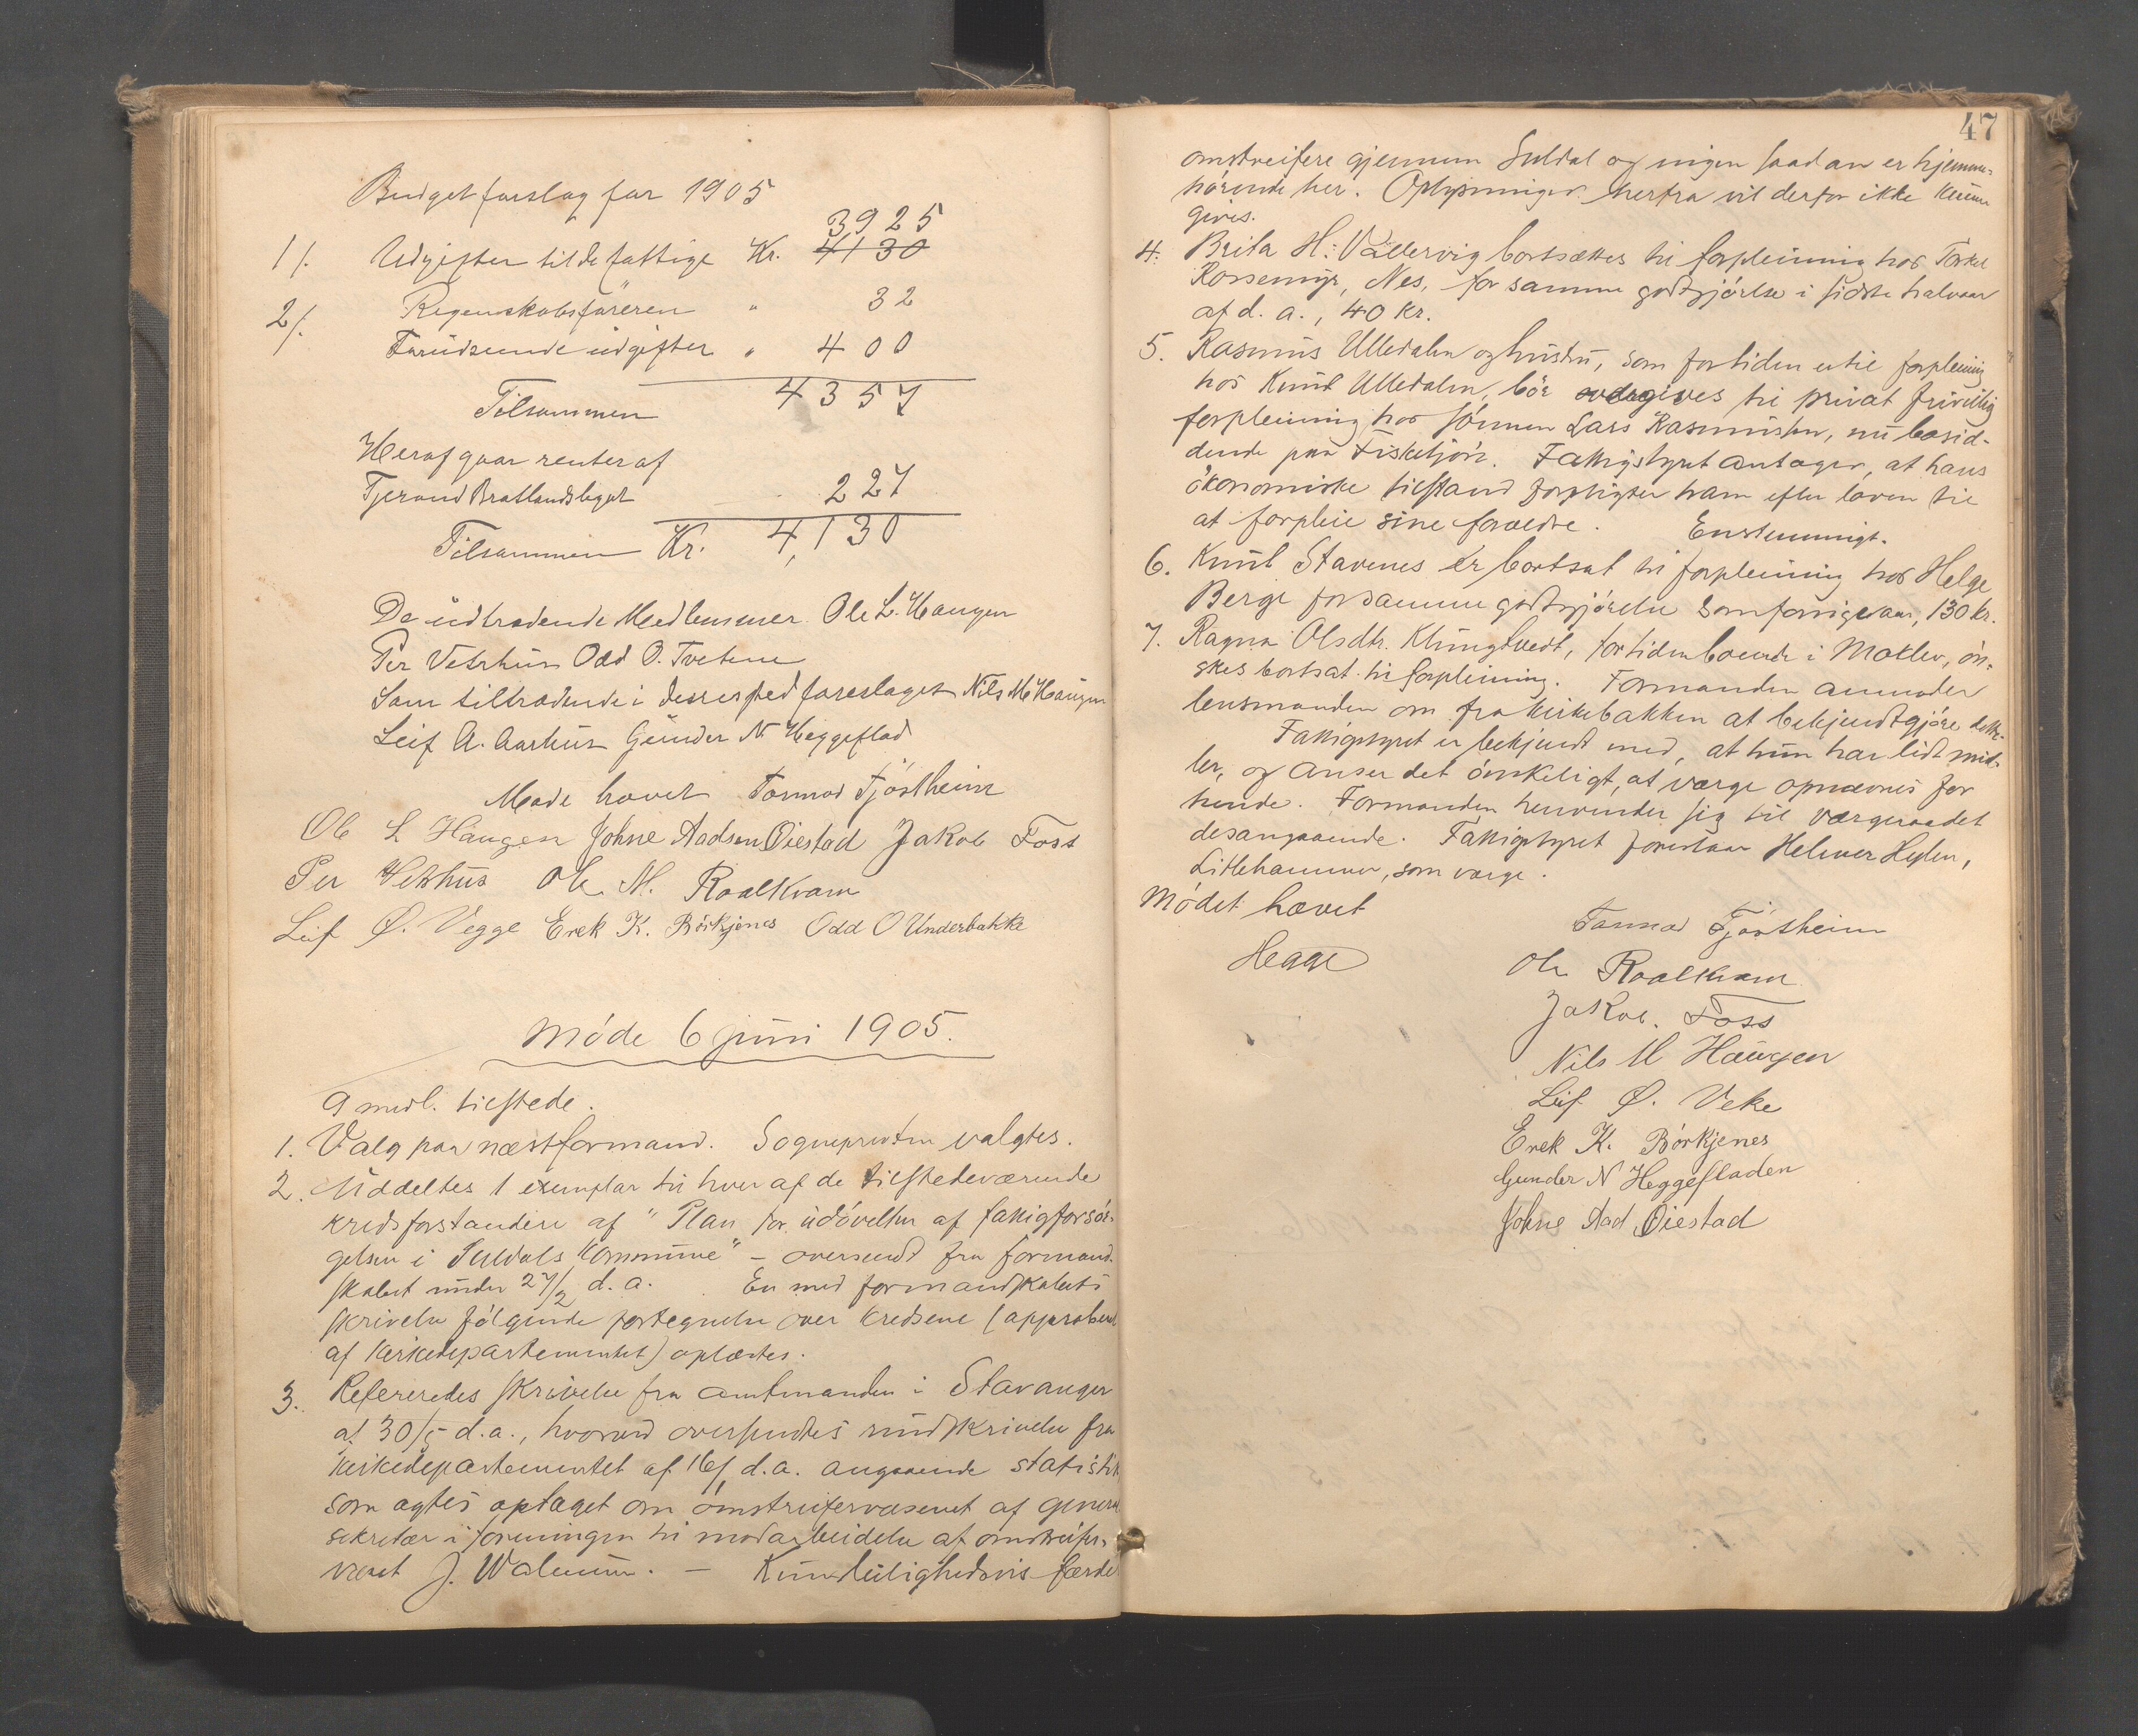 Budgetforslag for 1905
3925
1/. Udgifter til de fattige Kr. 4130
2/. Regenskabsføreren " 32
Forudseende udgifter " 400
Tilsammen 4357
Heraf gaar renter af
Tjerand Bratlandslegat 227
Tilsammen Kr. 4,130
De udtrædende Medlemmer Ole L. Haugen
Per Vetrhus Odd O. Tvetene
Som tiltrædende i deres sted foreslaget Nils M Haugen
Leif A. Aarhus Gunder N Heggeflad
Møde hævet Tormod Fjöstheim
Ole L Haugen Johne Aadsen Øiestad Jakob Foss
Per Vetrhus Ole M. Roalkvam
Leif Ø. Vegge Erek K. Börkjenes Odd O Underbakke
Møde 6 juni 1905.
9 medl. tilstede.
1. Valg paa næstformand. Sognepresten valgtes.
2. Uddeltes 1 exemplar til hver af de tilstedeværende
kredsforstandere af "Plan for udövelsen af fattigforsör-
gelsen i Suldals kommune" - oversendt fra formand-
skabet under 27/2 d.a. En med formandskabets
skrivelse fölgende fortegnelse over kredsene (approberet
af kirkedepartementet) oplæstes.
3. Refereredes skrivelse fra amtmanden i Stavanger
af 30/5 d.a., hvorved oversendtes rundskrivelse fra
kirkedepartementet af 16/ d.a. angaaende statistik
som agtes optaget om omstreifervæsenet af general
sekretær i foreningen til modarbeidelse af omstreifer-
væsenet J. Walnum. - Kun leilighedsvis færdes
47
omstreifere gjennem Suldal og ingen saadan er hjemme-
hörende her. Oplysninger herfra vil derfor ikke kunne
gives.
4. Brita H: Vallervig bortsættes til forpleining hos Torkel
Rossemyr, Nes, for samme godtgjörelse i sidste halvaar
af d. a., 40 kr.
5. Rasmus Ulledalen og hustru, som for tiden er til forpleining
hos Knut Ulledalen, bör overgives til privat frivillig
forpleining hos sönnen Lars Rasmussen, nu bosid-
dende paa Fisketjön. Fattigstyret antager, at hans
ökonomiske tilstand forpligter ham efter loven til
at forpleie sine forældre. Enstemmigt.
6. Knut Stavenes er bortsat til forpleining hos Helge
Berge for samme godtgjörelse som forrige aar, 130 kr.
7. Ragna Olsdtr. Klungtvedt, for tiden boende i Moklev, ön-
skes bortsat til forpleining. Formanden anmoder
lensmanden om fra kirkebakken at bekjendtgjöre dette.
Fattigstyret er bekjendt med, at hun har lidt mid-
ler, og anser det önskeligt, at værge opnævnes for
hende. Formanden henvender sig til værgeraadet
desangaaende. Fattigstyret foreslaar Helmer Hylen,
Litlehammer, som værge.
Mödet hævet
Tormod Fjöstheim
Hegge
Ole Roalkvam
Jakob. Foss
Nils M Haugen
Leif Ø. Veke
Erek K. Börkjenes
Gunder N Heggefladen
Johne Aad Øiestad